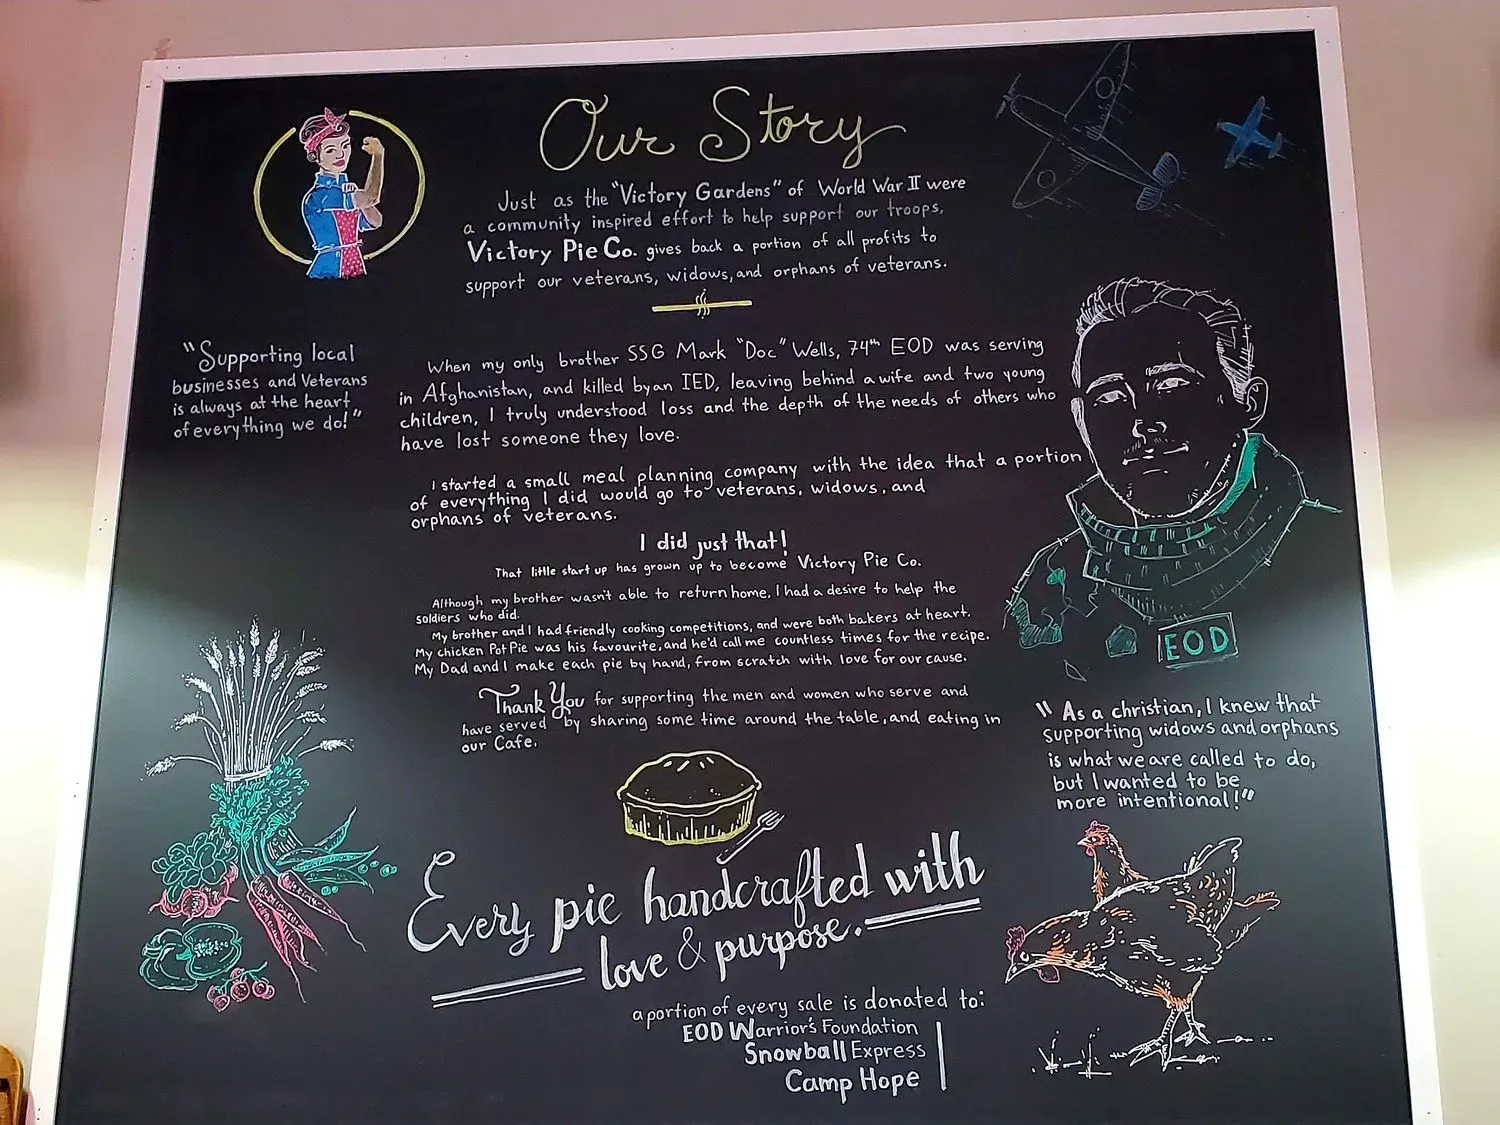 Our Story
Just as the "Victory Gardens" of World War II were
a community inspired effort to help support our troops,
Victory Pie Co. gives back a portion of all profits to
support our veterans, widows, and orphans of veterans.
"Supporting local
businesses and Veterans
is always at the heart
of everything we do!"
When my only brother SSG Mark "Doc" Wells, 74th EOD was serving
in Afghanistan, and killed by an IED, leaving behind a wife and two young
children, I truly understood loss and the depth of the needs of others who
have lost someone they love.
I started a small meal planning company with the idea that a portion
of everything I did would go to veterans, widows, and
orphans of veterans.
I did just that!
That little start up has grown up to become Victory Pie Co.
Although my brother wasn't able to return home, I had a desire to help the
soldiers who did.
My brother and I had friendly cooking competitions, and were both bakers at heart.
My chicken Pot Pie was his favourite, and he'd call me countless times for the recipe.
My Dad and I make each pie by hand, from scratch with love for our cause.
Thank You for supporting the men and women who serve and
have served by sharing some time around the table, and eating in
our Cafe.
EOD
"As a christian, I knew that
supporting widows and orphans
is what we are called to do,
but I wanted to be
more intentional!"
Every pie handcrafted with
love & purpose.
a portion of every sale is donated to:
EOD Warrior's Foundation
Snowball Express
Camp Hope